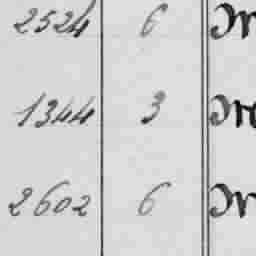 2524 6
1344 3
2602 6